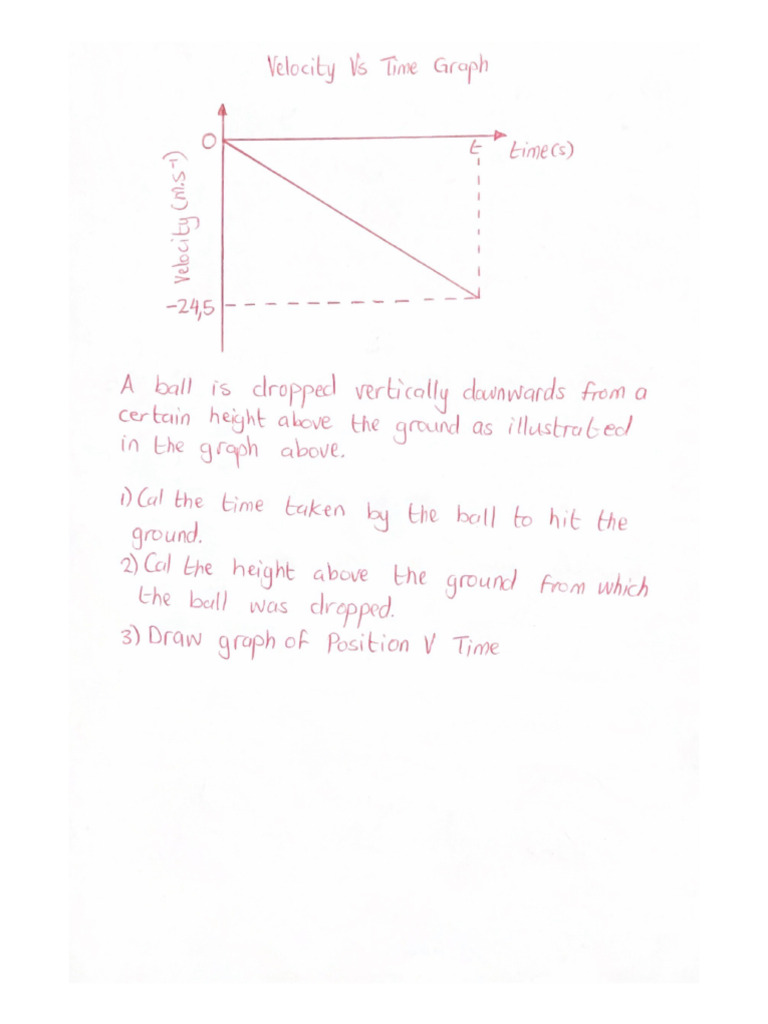 Velocity Vs Time Graph
0
t
time(s)
Velocity (m.s⁻¹)
-24,5
A ball is dropped vertically downwards from a
certain height above the ground as illustrated
in the graph above.
1) Cal the time taken by the ball to hit the
ground.
2) Cal the height above the ground from which
the ball was dropped.
3) Draw graph of Position V Time